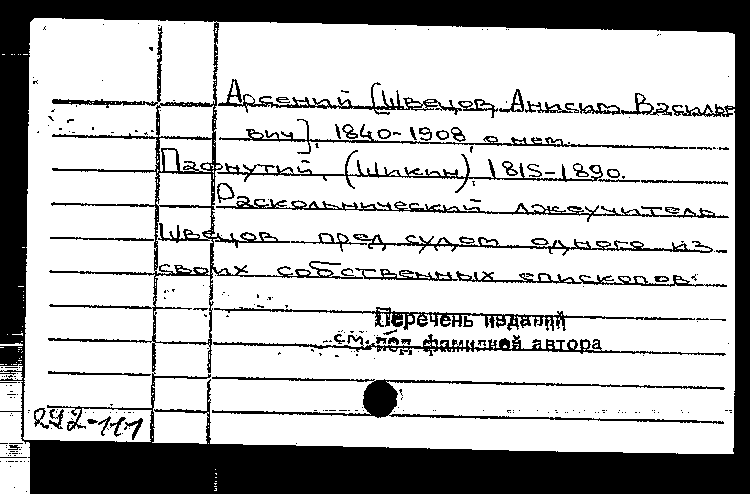 Арсений [Швецов, Анисим Василье
вич], 1840-1908, о нем.
Пафнутий, (Шикин), 1815-1890.
Раскольнический лжеучитель
Швецов пред судом одного из
своих собственных епископов.
Перечень изданий
см. под фамилией автора
292-111